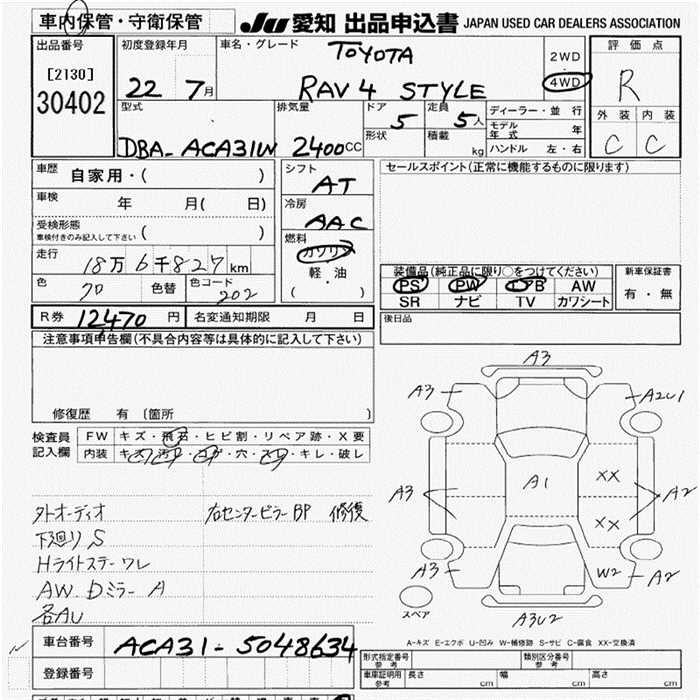 車内保管・守衛保管 JU 愛知 出品申込書 JAPAN USED CAR DEALERS ASSOCIATION
出品番号 初度登録年月 車名・グレード TOYOTA 2WD 評価点
[2130] ・
30402 22 7月 RAV4 STYLE 4WD R
型式 排気量 ドア 5 定員 5人 ディーラー・並行 外装 内装
モデル年式 年
DBA-ACA31W 2400CC 形状 積載 kg ハンドル 左・右 C C
車歴 自家用・( ) シフト AT セールスポイント(正常に機能するものに限ります)
車検 年 月( 日) 冷房 AAC
受検形態
車検付きのみ記入して下さい ( ) 燃料 ガソリン
走行 18万6千827km 軽・油 装備品(純正品に限り○をつけてください) 新車保証書
色 クロ 色替 色コード 202 ( ) PS PW エアB AW 有・無
SR ナビ TV カワシート
R券 12470円 名変通知期限 月 日 後日品
注意事項申告欄(不具合内容等は具体的に記入して下さい)
修復歴 有(箇所 )
検査員 FW キズ・飛石・ヒビ割・リペア跡・X要
記入欄 内装 キズ・汚れ・コゲ・穴・スレ・キレ・破レ
外オーディオ 右センターピラーBP 修復
下廻りS
Hライトステーワレ
AW.Dミラー A
各AU
A3
A3 A2U1
A3 A1 XX A2
XX
A3 W2 A2
スペア A3U2
A-キズ E-エクボ U-凹み W-補修跡 S-サビ C-腐食 XX-交換済
車台番号 ACA31-5048634 型式指定番号 参考 類別区分番号 参考
登録番号 車庫証明用 参考 長さ cm 幅 cm 高さ cm